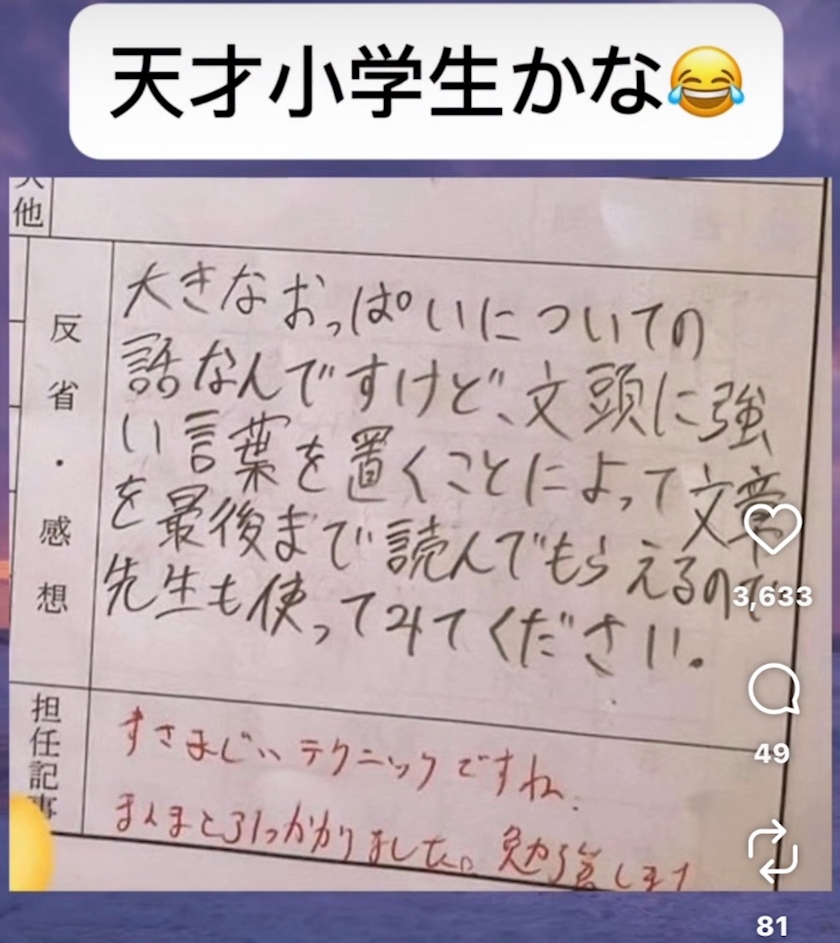 天才小学生かな😂
他
反省・感想
大きなおっぱいについての
話なんですけど、文頭に強
い言葉を置くことによって文章
を最後まで読んでもらえるので
先生も使ってみてください。
担任記事
すさまじいテクニックですね.
まんまと引っかかりました。勉強します
3,633
49
81